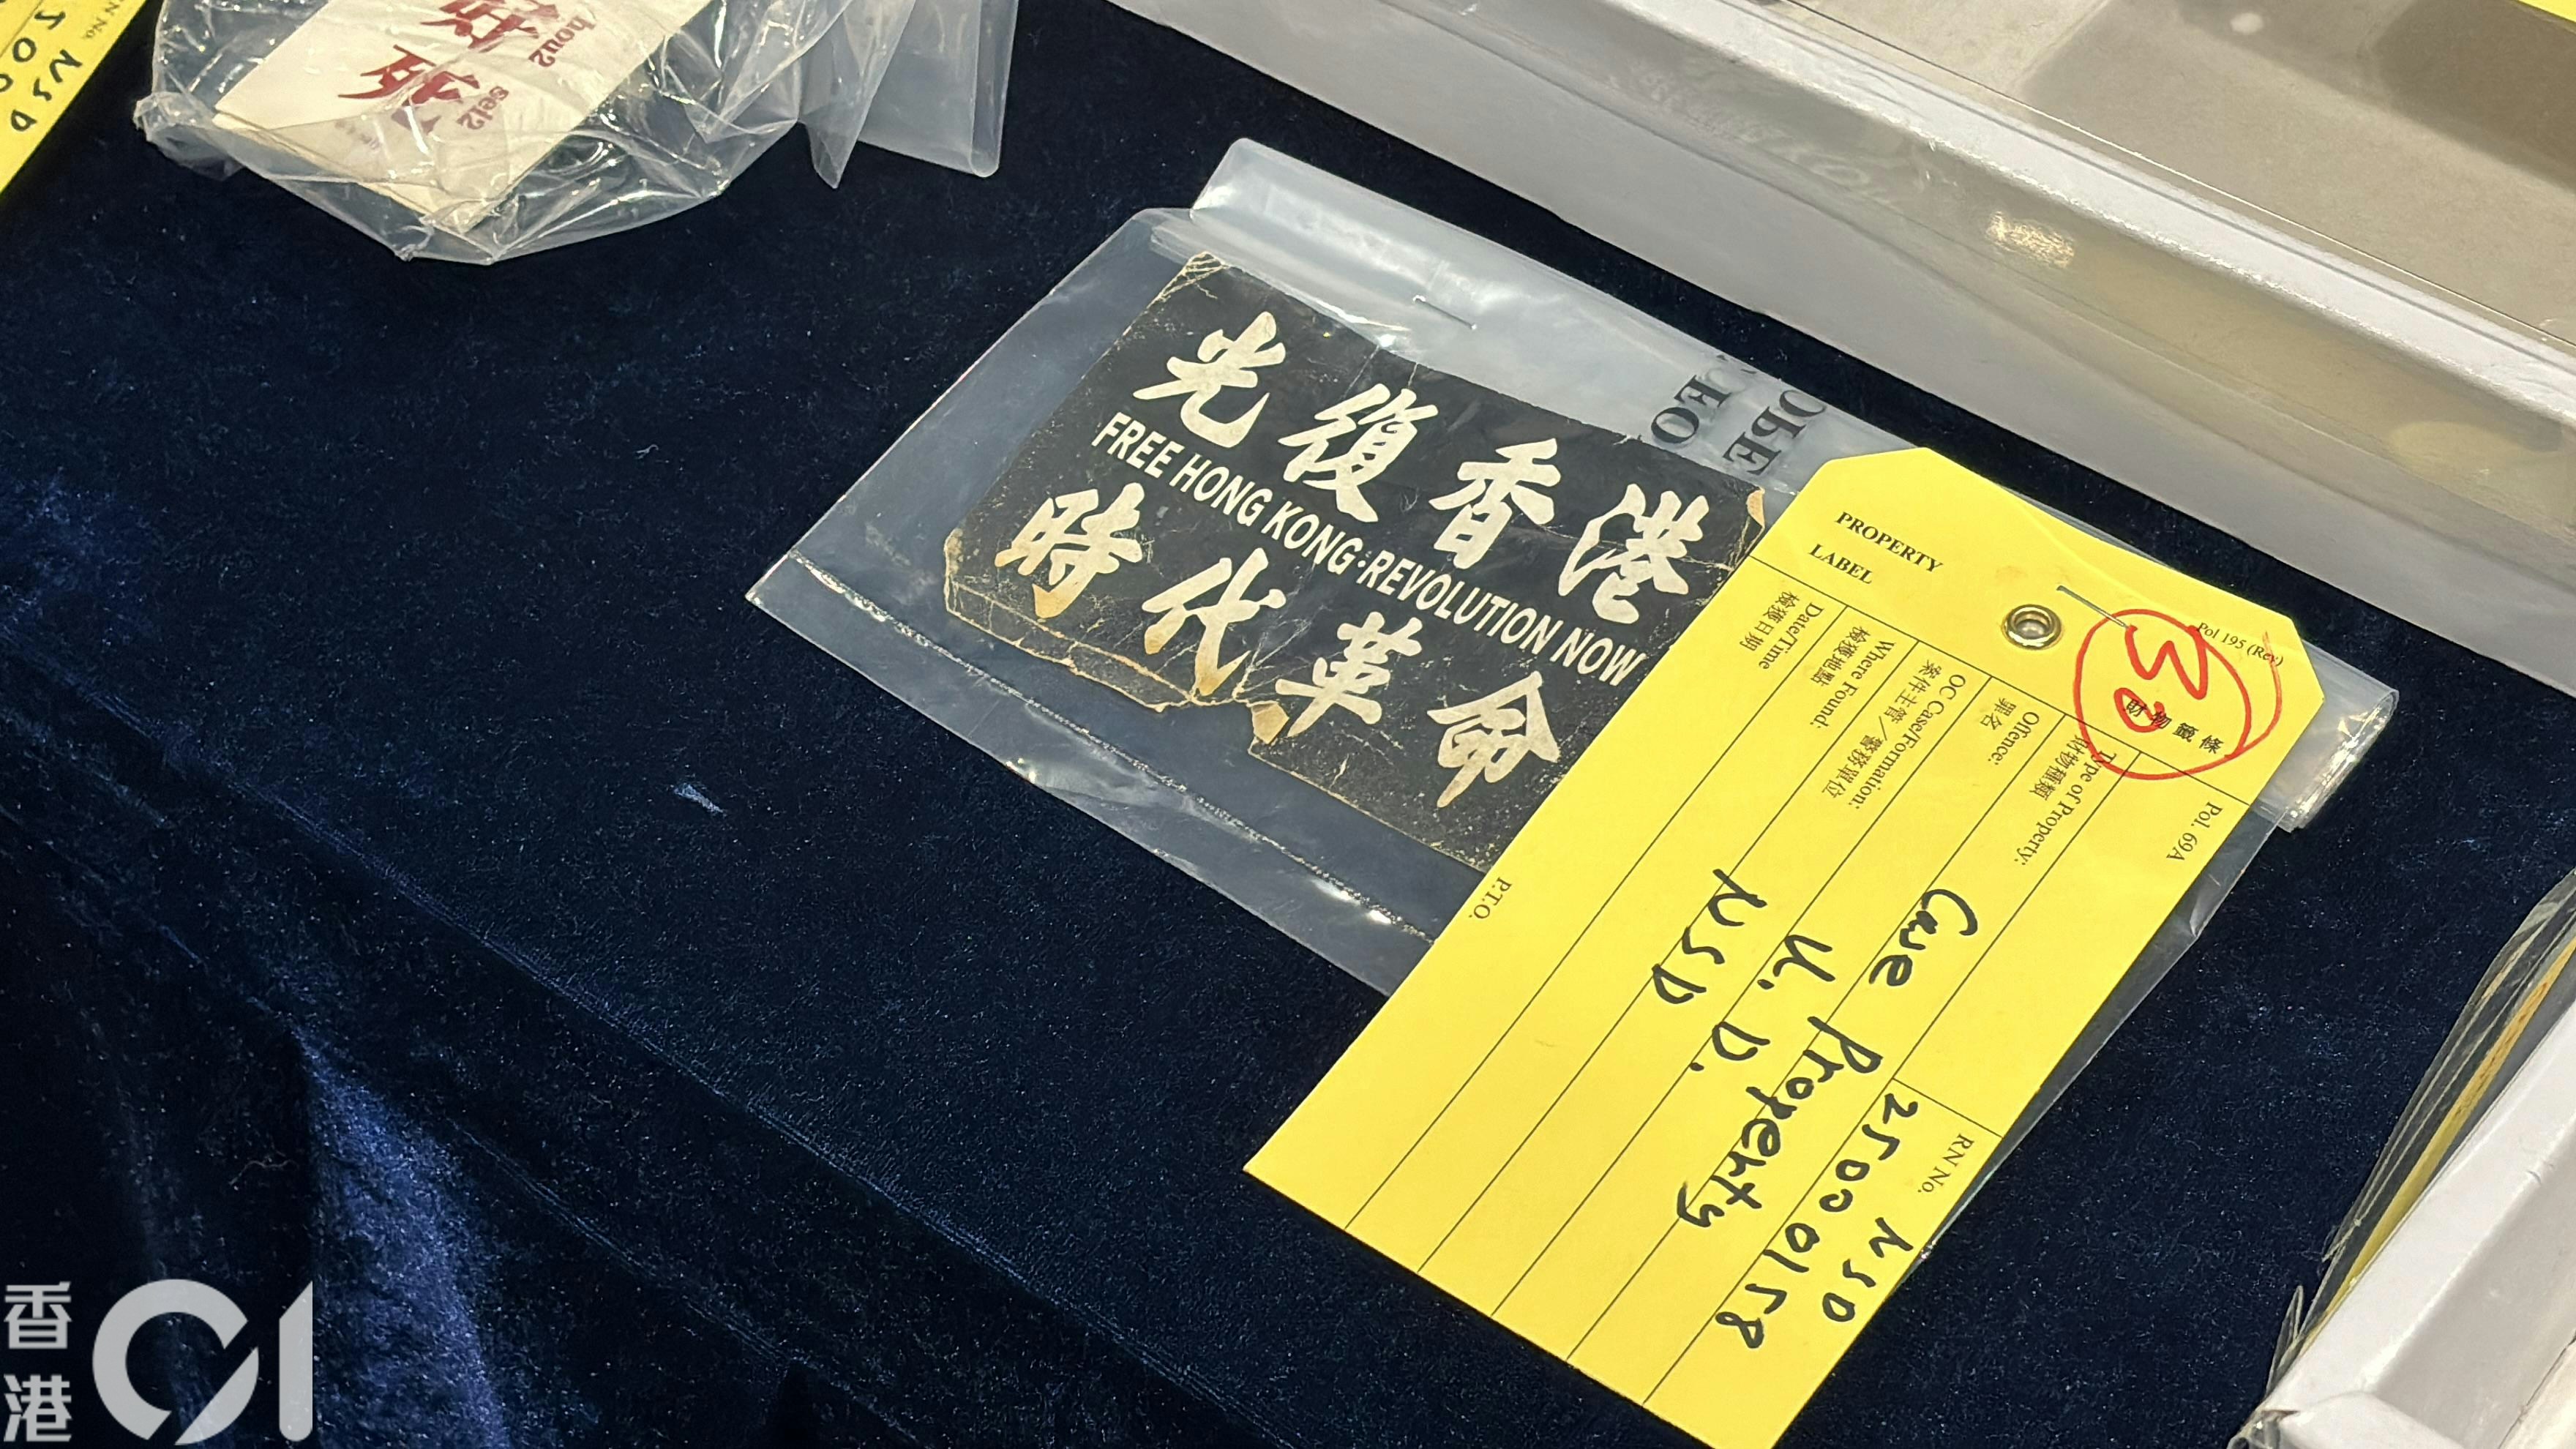 好
hou2
死
sei2
光復香港
FREE HONG KONG:REVOLUTION NOW
時代革命
PROPERTY
LABEL
Pol 195 (Rev)
30
財物籤條
Pol. 69A
RN No.
NSD
25000158
Type of Property:
財物種類
Case Property
Offence:
罪名
OC Case/Formation:
案件主管/警務單位
U. D.
Where Found:
檢獲地點
NSD
Date/Time
檢獲日期
P.T.O.
RN No.
NSD
香港01